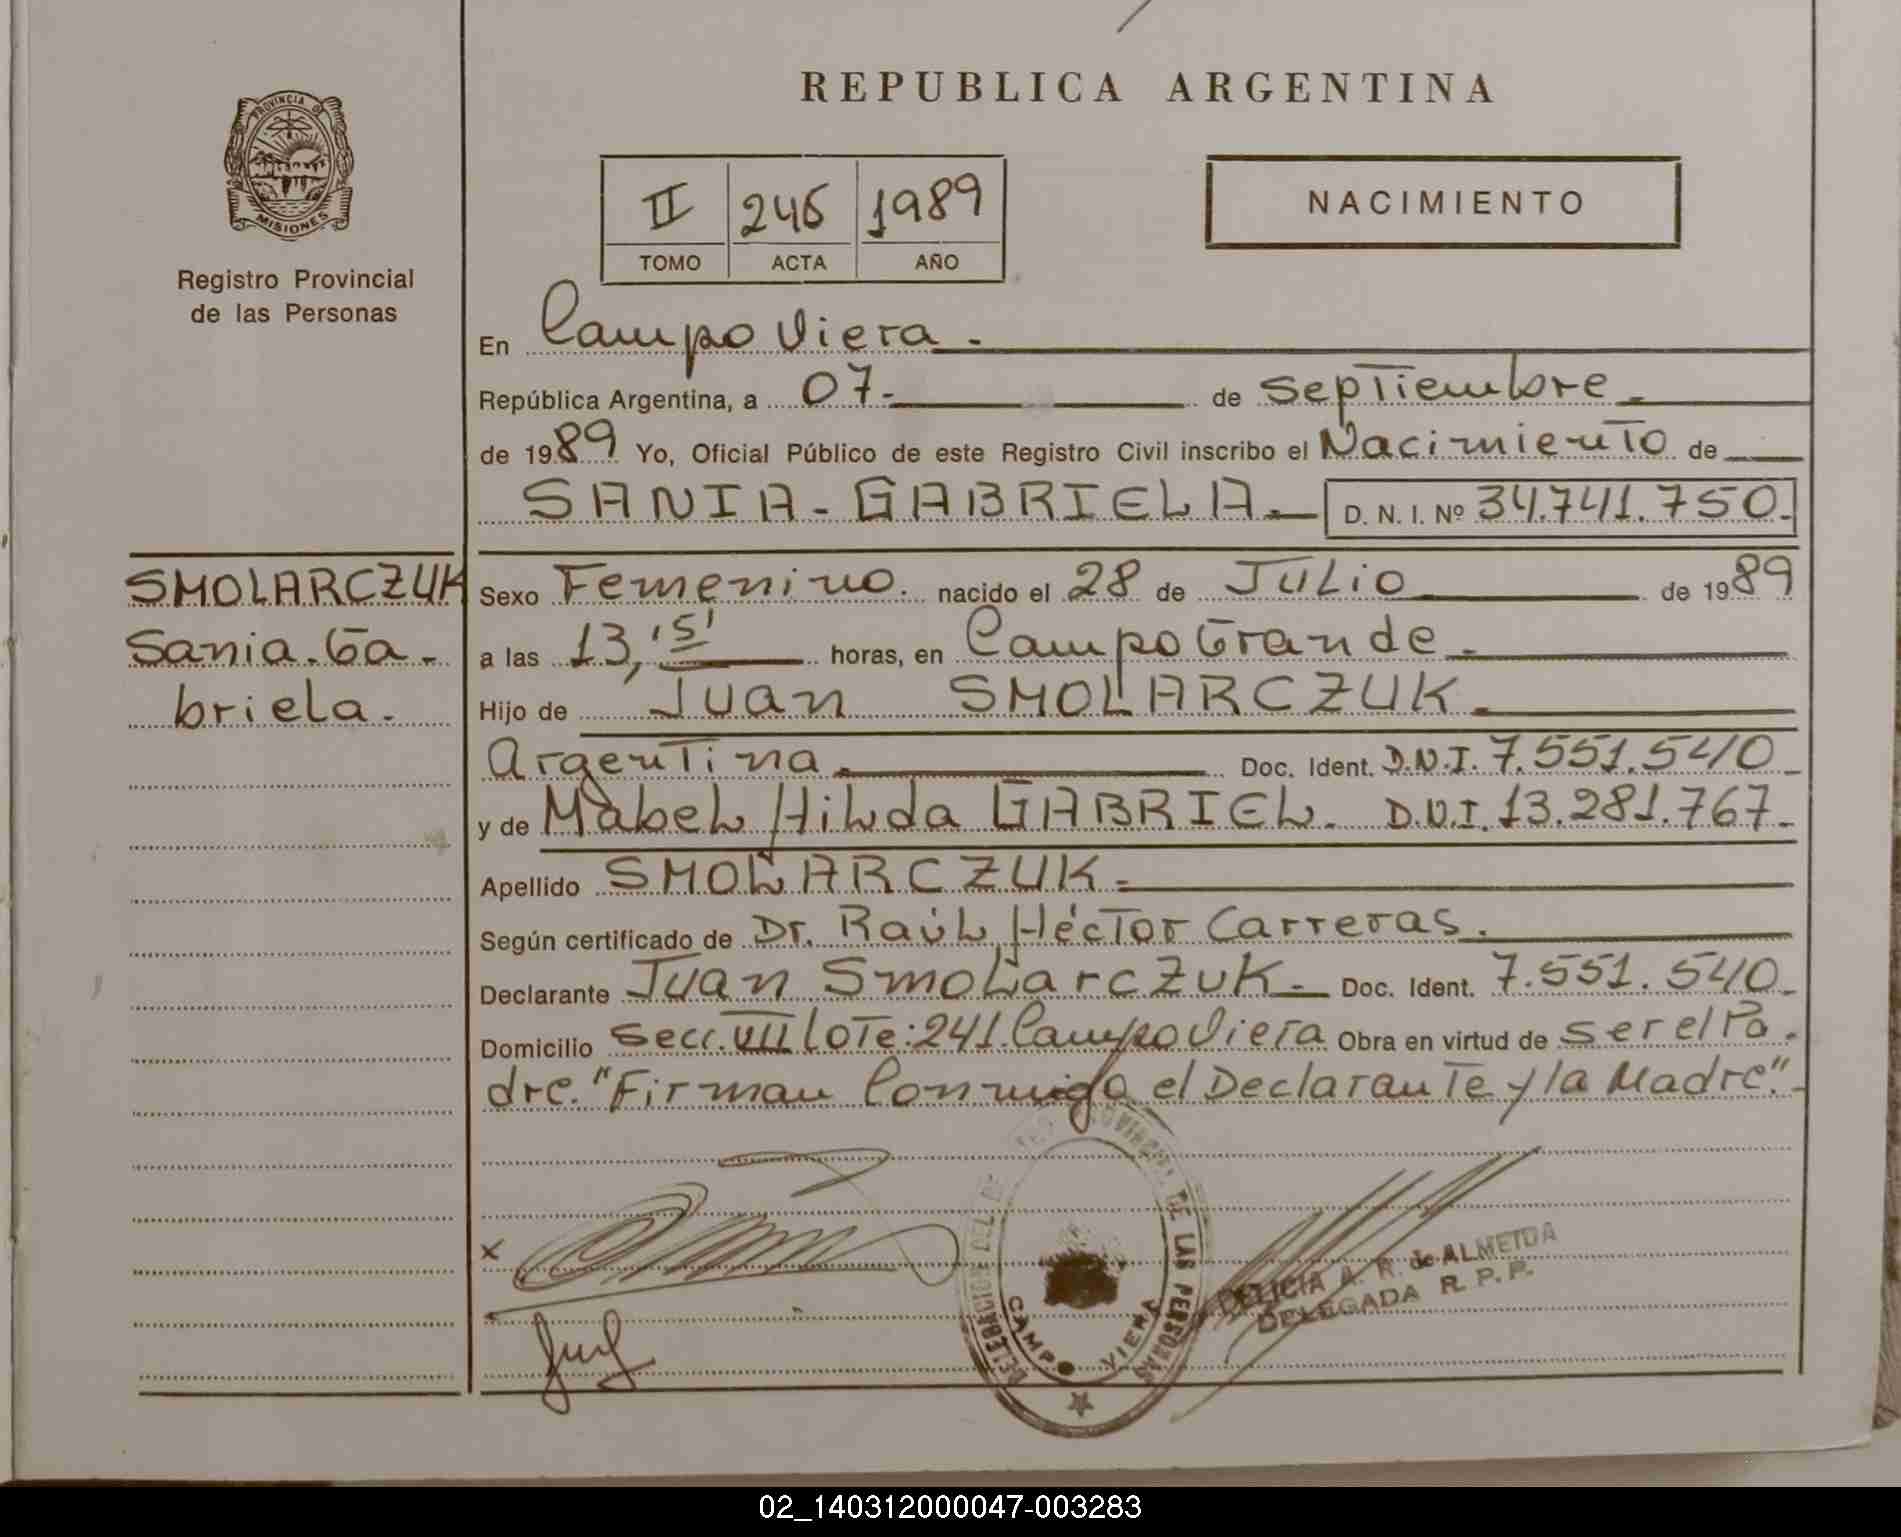 REPUBLICA ARGENTINA
PROVINCIA D
MISIONES
Registro Provincial
de las Personas
II 246 1989
TOMO ACTA AÑO
NACIMIENTO
En Campo Viera.
República Argentina, a 07. de Septiembre.
de 1989 Yo, Oficial Público de este Registro Civil inscribo el Nacimiento de
SANIA-GABRIELA. D. N. I. Nº 34.741.750.
SMOLARCZUK
Sania.Ga-
briela.
Sexo Femenino. nacido el 28 de Julio de 1989
a las 13,15' horas, en Campo Grande.
Hijo de Juan SMOLARCZUK.
Argentina. Doc. Ident. D.N.I. 7.551.540
y de Mabel Hilda GABRIEL. D.N.I. 13.281.767.
Apellido SMOLARCZUK.
Según certificado de Dr. Raúl Héctor Carreras.
Declarante Juan Smolarczuk. Doc. Ident. 7.551.540
Domicilio Secc. VIII Lote: 241. Campo Viera Obra en virtud de ser el Pa-
dre. "Firman Conmigo el Declarante y la Madre".
x
DELEGACION DEL PROVINCIAL DE LAS PERSONAS
CAMPO VIERA
DELICIA A. R. de ALMEIDA
DELEGADA R. P. P.
02_140312000047-003283